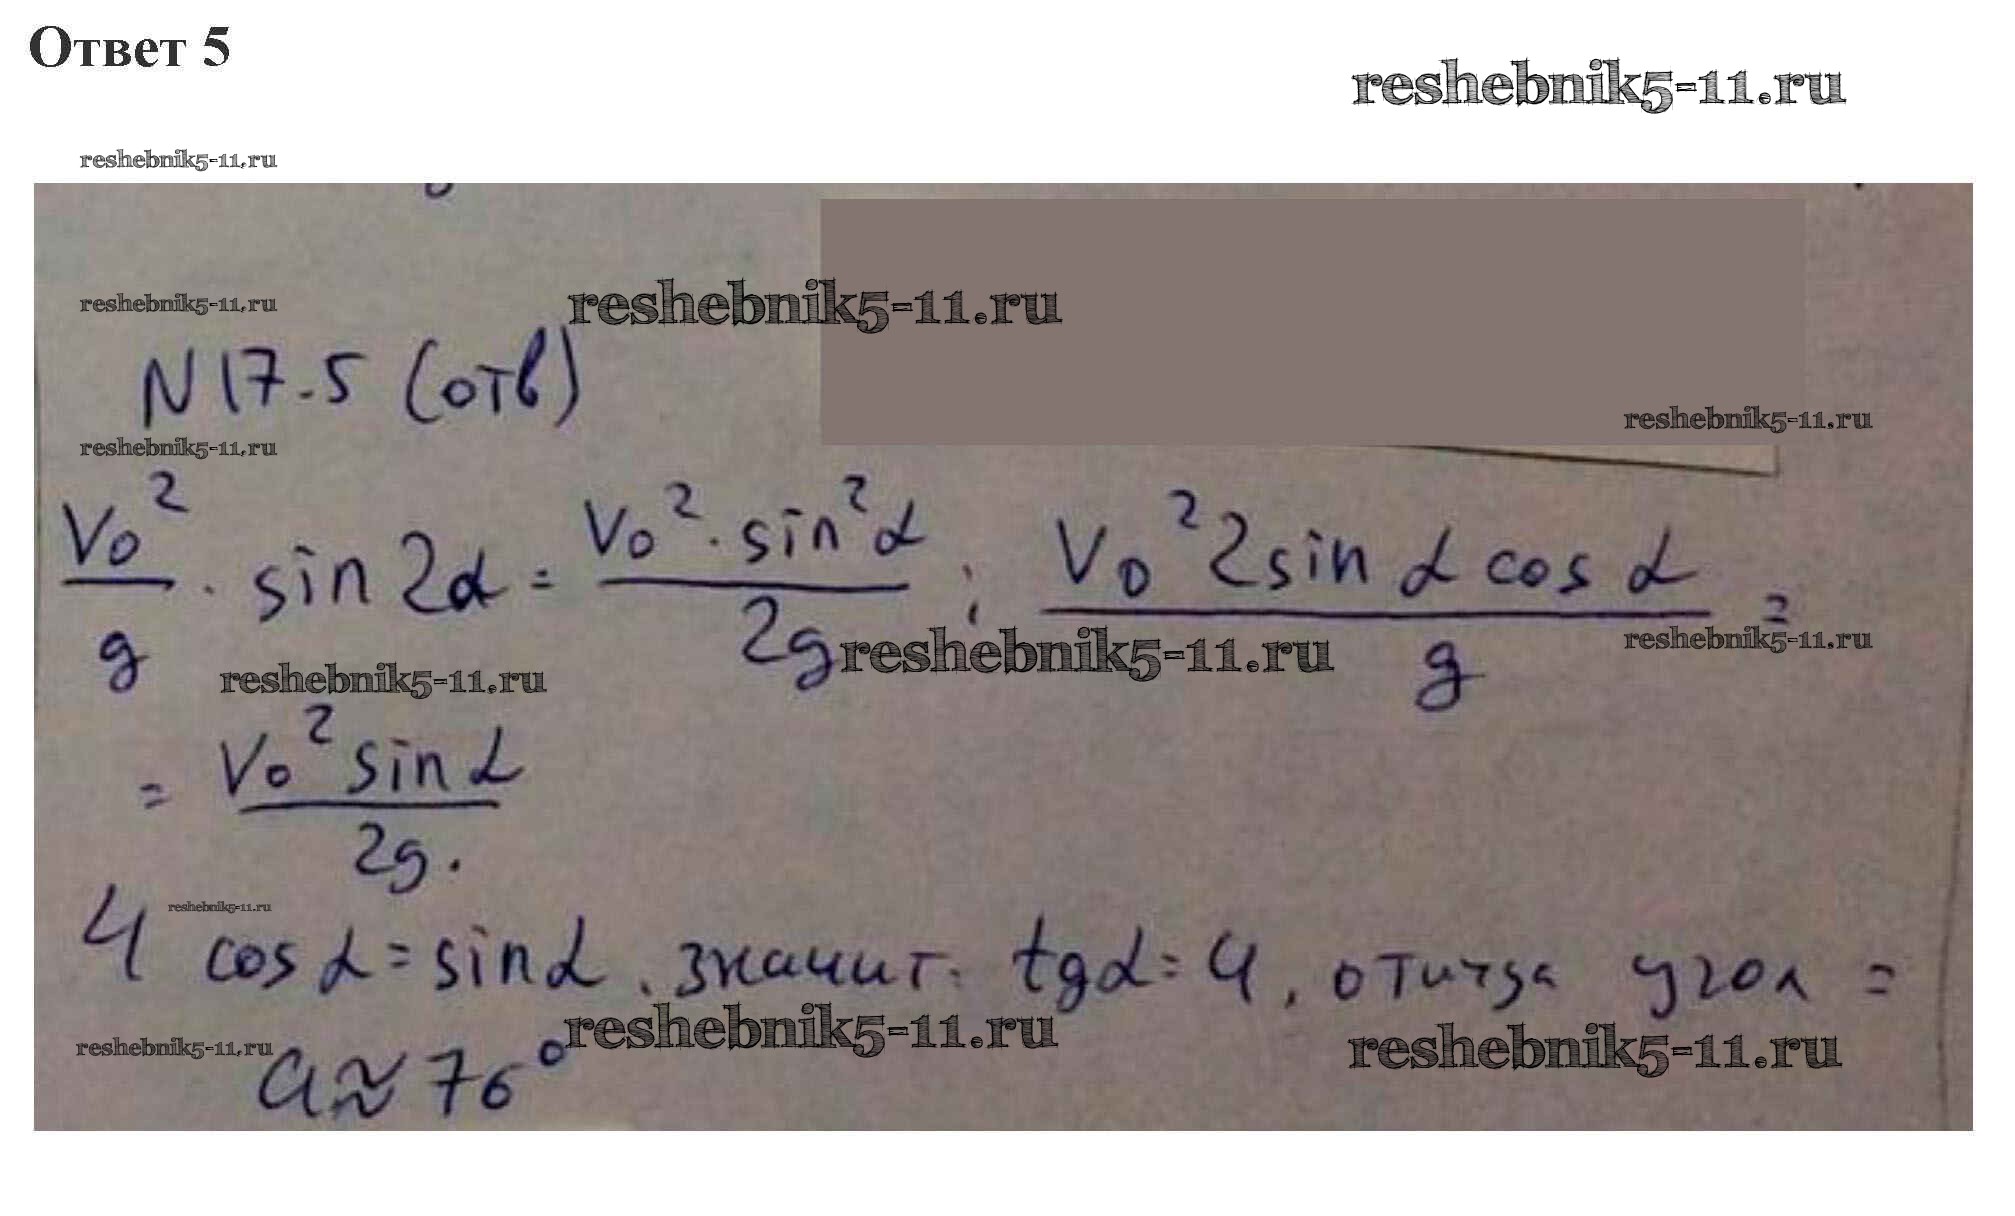 Ответ 5
reshebnik5-11.ru
reshebnik5-11.ru
reshebnik5-11.ru reshebnik5-11.ru
N 17.5 (отв)
reshebnik5-11.ru
reshebnik5-11.ru
V₀²/g · sin 2α = V₀² · sin²α / 2g ; V₀² 2 sin α cos α / g =
reshebnik5-11.ru reshebnik5-11.ru reshebnik5-11.ru
= V₀² sin α / 2g.
reshebnik5-11.ru
4 cos α = sin α, значит tg α = 4, угол =
reshebnik5-11.ru reshebnik5-11.ru reshebnik5-11.ru
a ≈ 76°